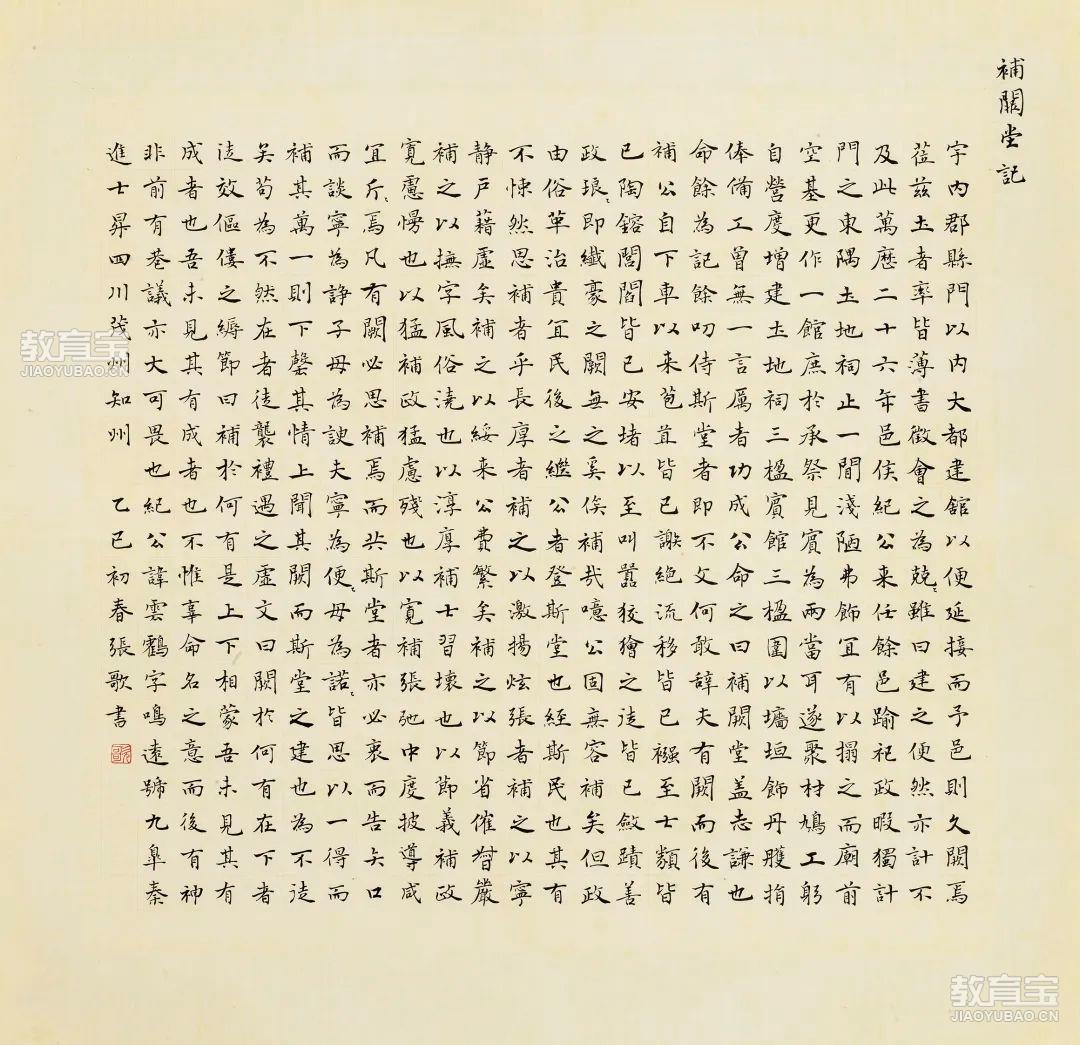 補闕堂記
宇內郡縣門以內大都建舘以便延接而予邑則久闕焉
蒞茲土者率皆薄書徵會之為兢〻雖曰建之便然亦計不
及此萬歷二十六年邑侯紀公来任餘邑踰祀政暇獨計
門之東隅土地祠止一間淺陋弗飾宜有以搨之而廟前
空基更作一館庶於承祭見賓為兩當耳遂聚材鳩工躬
自營度增建土地祠三楹賓館三楹圍以墻垣飾丹雘捐
俸備工曾無一言屬者功成公命之曰補闕堂盖志謙也
命餘為記餘叨侍斯堂者即不文何敢辭夫有闕而後有
補公自下車以来苞苴皆已謝絕流移皆已襁至士類皆
已陶鎔閭閻皆已安堵以至叫囂狡獪之徒皆已斂蹟善
政琅〻即纖豪之闕無之奚俟補哉噫公固無容補矣但政
由俗革治貴宜民後之繼公者登斯堂也經斯民也其有
不悚然思補者乎長厚者補之以激揚炫張者補之以寧
静戶藉虛矣補之以綏来公費繁矣補之以節省催督嚴
補之以撫字風俗澆也以淳厚補士習壞也以節義補政
寬慮慢也以猛補政猛慮殘也以寬補張弛中度披導咸
宜斤〻焉凡有闕必思補焉而㳟斯堂者亦必衷而告矢口
而談寧為諍子毋為諛夫寧為便〻毋為諾〻皆思以一得而
補其萬一則下罄其情上聞其闕而斯堂之建也為不徒
矣苟為不然在者徒襲禮遇之虛文曰闕於何有在下者
徒效傴僂之縟節曰補於何有是上下相蒙吾未見其有
成者也吾未見其有成者也不惟辜命名之意而後有神
非前有巷議亦大可畏也紀公諱雲鶴字鳴遠號九臯秦
進士昇四川茂州知州 乙巳初春張歌書
教育宝
JIAOYUBAO.CN
教育宝
JIAOYUBAO.CN